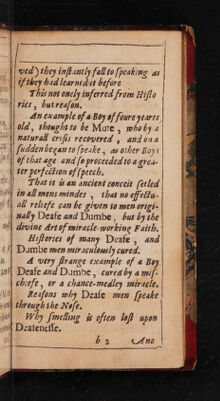 ved) they instantly fall to speaking as
if they had learned it before
This not onely inferred from Histo
ries, but reason.
An example of a Boy of foure yeares
old, thought to be Mute, who by a
naturall crisis recovered, and on a
sudden began to speake, as other Boys
of that age and so proceeded to a grea-
ter perfection of speech.
That it is an ancient conceit setled
in all mens mindes, that no effectu-
all reliefe can be given to men origi-
nally Deafe and Dumbe, but by the
devine Art of miracle-working Faith.
Histories of many Deafe, and
Dumbe men miraculously cured.
A very strange example of a Boy
Deafe and Dumbe, cured by a mis-
chiefe, or a chance-medley miracle.
Reasons why Deafe men speake
through the Nose.
Why smelling is often lost upon
Deafenesse.
b 2 Ano